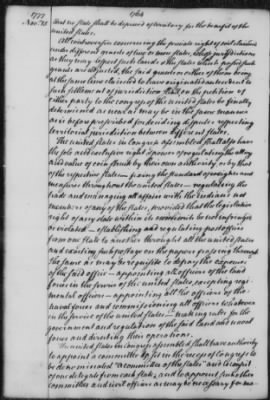 1777
Nov. 15
764
that no state shall be deprived of territory for the benefit of the
united states.
All controversies concerning the private right of soil claimed
under different grants of two or more states, whose jurisdictions
as they may respect such lands &
the states which passed such
grants are adjusted, the said grants or either of them being
at the same time claimed to have originated antecedent to
such settlement of jurisdiction shall, on the petition of
either party to the congress of the united states be finally
determined as near as may be in the same manner
as is before prescribed for deciding disputes respecting
territorial jurisdiction between different states.
The united states in congress assembled shall also have
the sole and exclusive right & power of regulating the alloy
and value of coin struck by their own authority, or by that
of the respective states — fixing the standard of weights and
measures throughout the united states — regulating the
trade and managing all affairs with the Indians not
members of any of the states, provided that the legislative
right of any state within its own limits be not infringed
or violated — establishing and regulating post offices
from one state to another throughout all the united states
and exacting such postage on the papers passing through
the same as may be requisite to defray the expences
of the said office — appointing all officers of the land
forces in the service of the united states, excepting regi
mental officers — appointing all the officers of the
naval forces and commissioning all officers whatever
in the service of the united states — making rules for the
government and regulation of the said land and naval
forces and directing their operations.
The united states in congress assembled shall have authority
to appoint a committee to sit in the recess of congress to
be denominated "A committee of the states" and to consist
of one delegate from each state, and to appoint such other
committees and civil officers as may be necessary for ma